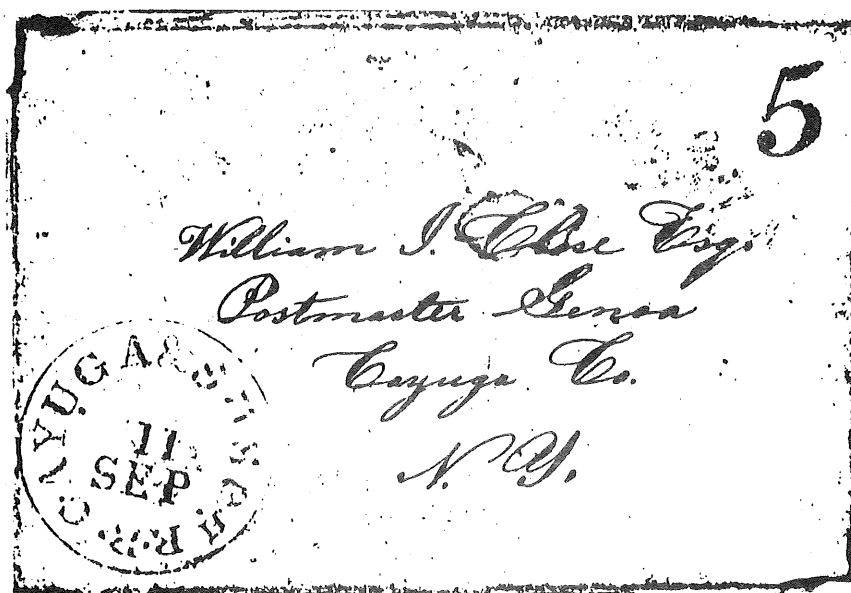 5
William I. Close Esq.
Postmaster Genoa
Cayuga Co.
N. Y.
CAYUGA & SUSQH. R.R.
11
SEP